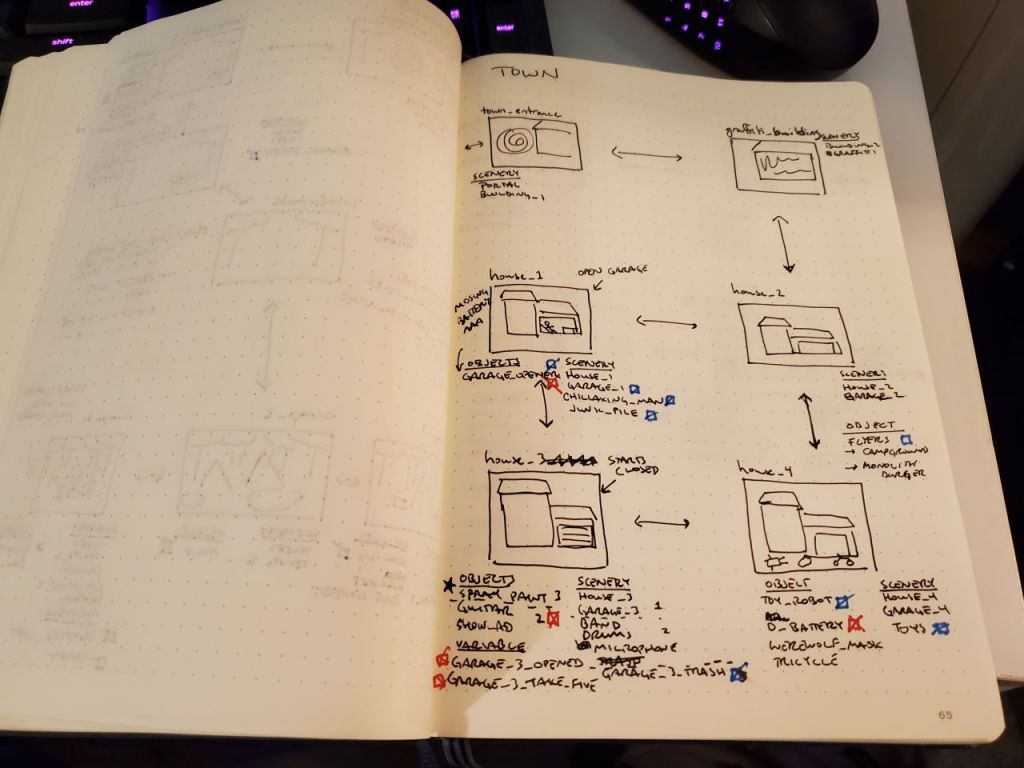 enter
shift
enter
TOWN
town_entrance
SCENERY
PORTAL
BUILDING_1
graffiti_building
SCENERY
BUILDING_2
GRAFFITI
house_1
OPEN GARAGE
MISSING
BATTERY
AAA
OBJECTS
GARAGE_OPENER
SCENERY
HOUSE_1
GARAGE_1
CHILLAXING_MAN
JUNK_PILE
house_2
SCENERY
HOUSE_2
GARAGE_2
OBJECT
FLYERS
→ CAMPGROUND
→ MONOLITH
BURGER
house_3
STARTS
CLOSED
OBJECTS
SPRAY_PAINT 3
GUITAR
SHOW_AD
2
VARIABLE
GARAGE_3_OPENED
GARAGE_3_TAKE_FIVE
SCENERY
HOUSE_3
GARAGE_3 1
BAND
DRUMS 2
MICROPHONE
GARAGE_3_TRASH
house_4
OBJECT
TOY_ROBOT
D_BATTERY
WEREWOLF_MASK
TRICYCLE
SCENERY
HOUSE_4
GARAGE_4
TOYS
65